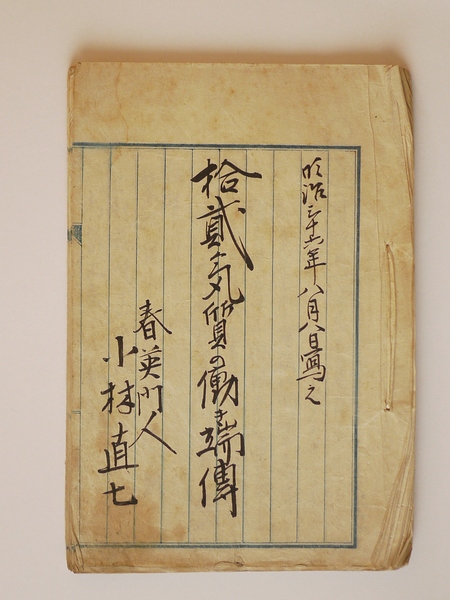 明治三十六年八月八日寫之
拾貳気質の働き端傳
春英門人
小林直七